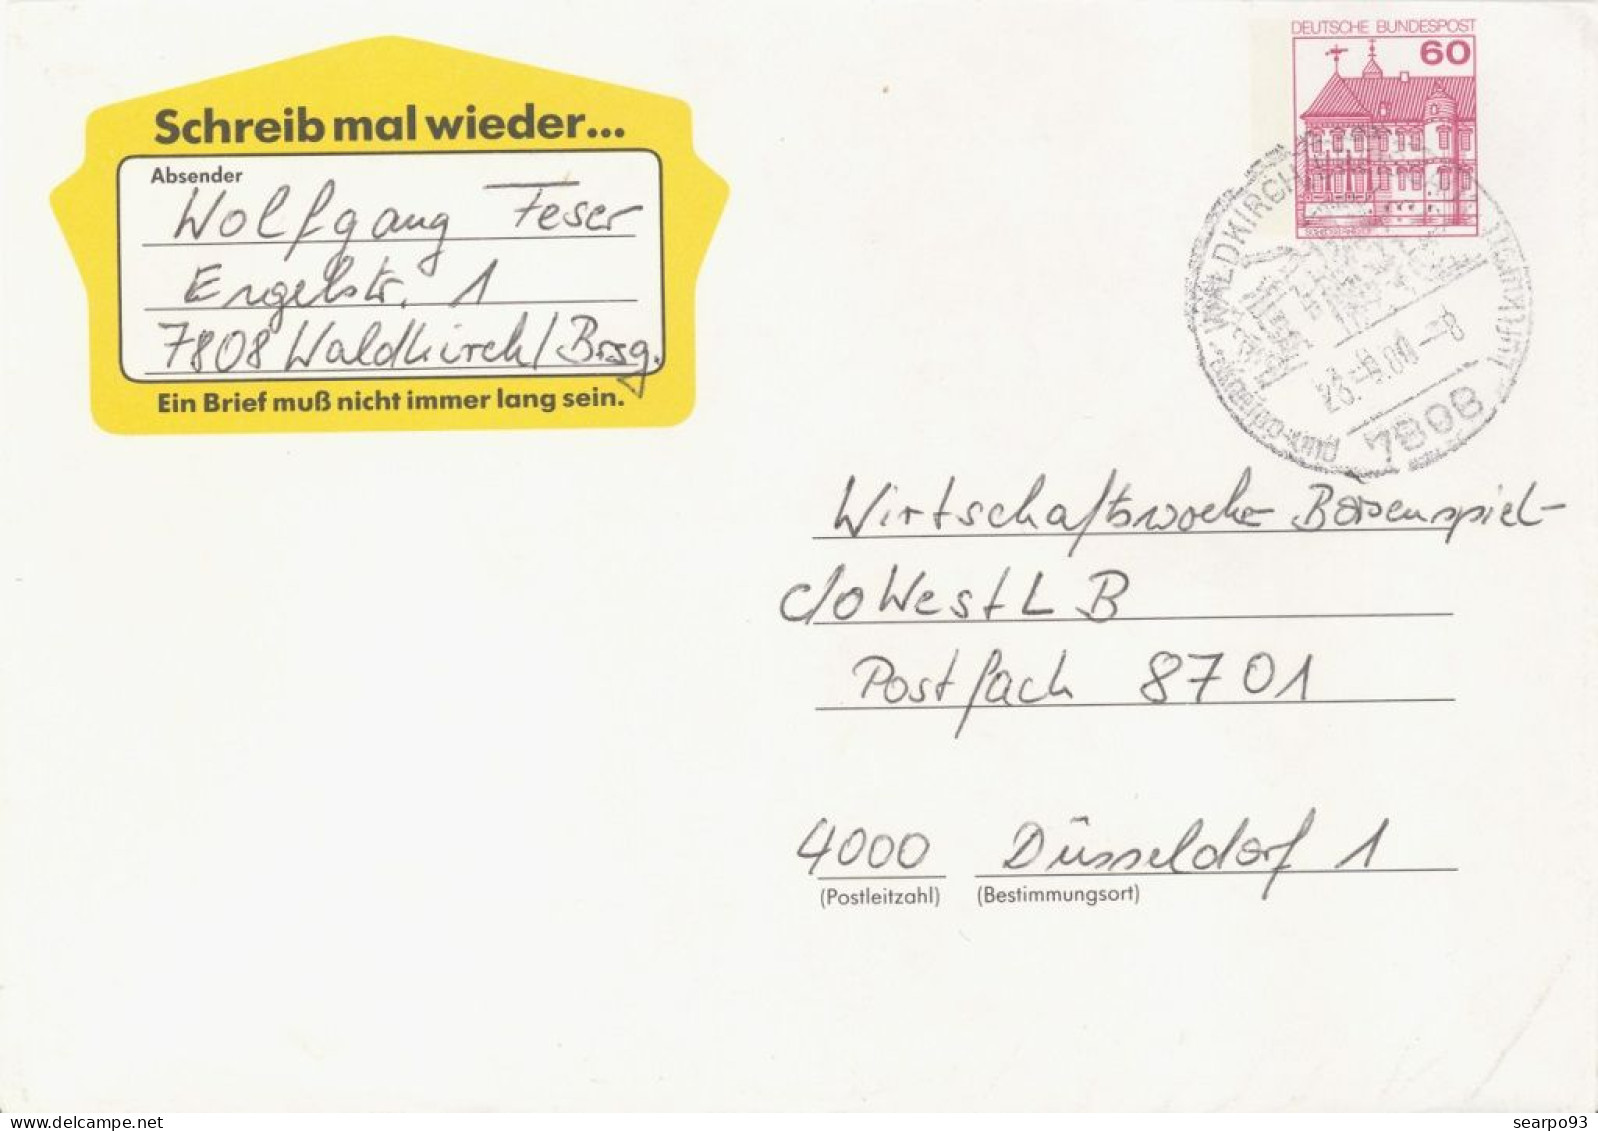 Schreib mal wieder...
Absender
Wolfgang Feser
Engelstr. 1
7808 Waldkirch/Brsg.
Ein Brief muß nicht immer lang sein.
DEUTSCHE BUNDESPOST
60
WALDKIRCH
7808
Wirtschaftswoche Börsenspiel-
c/o WestLB
Postfach 8701
4000 Düsseldorf 1
(Postleitzahl) (Bestimmungsort)
searpo93